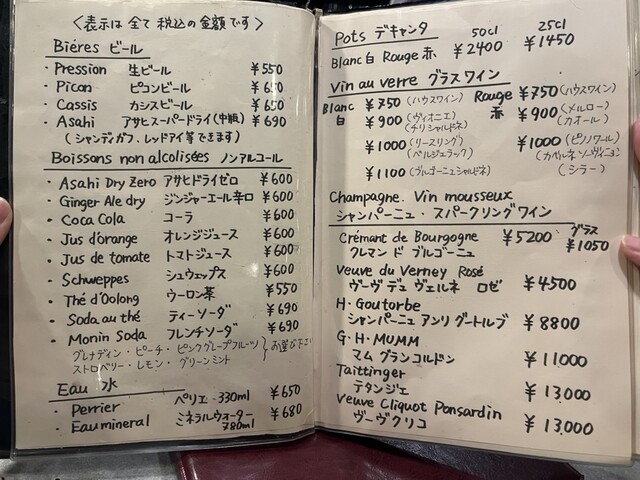 〈表示は全て税込の金額です〉
Biéres ビール
・Pression 生ビール ¥550
・Picon ピコンビール
・Cassis カシスビール
・Asahi アサヒスーパードライ(中瓶) ¥690
(シャンディガフ、レッドアイ等できます)
Boissons non alcolisées ノンアルコール
・Asahi Dry Zero アサヒドライゼロ ¥600
・Ginger Ale dry ジンジャーエール辛口 ¥600
・Coca Cola コーラ ¥600
・Jus d'orange オレンジジュース ¥600
・Jus de tomate トマトジュース ¥600
・Schweppes シュウェップス ¥600
・Thé d'Oolong ウーロン茶 ¥550
・Soda au thé ティーソーダ ¥690
・Monin Soda フレンチソーダ ¥690
グレナディン・ピーチ・ピンクグレープフルーツ
ストロベリー・レモン・グリーンミント
お選び下さい
Eau 水
・Perrier ペリエ・330ml ¥650
・Eau mineral ミネラルウォーター 780ml ¥680
Pots デキャンタ 50cl 25cl
Blanc白 Rouge赤 ¥2400 ¥1450
Vin au verre グラスワイン
Blanc 白 ¥750(ハウスワイン)
¥900(ヴィオニエ)(チリシャルドネ)
¥1000(リースリング)(ベルジュラック)
¥1100(ブルゴーニュシャルドネ)
Rouge 赤 ¥750(ハウスワイン)
¥900(メルロー)(カオール)
¥1000(ピノノワール)(カベルネソーヴィニョン)(シラー)
Champagne. Vin mousseux
シャンパーニュ・スパークリングワイン
Crémant de Bourgogne ¥5200 グラス ¥1050
クレマン ド ブルゴーニュ
Veuve du Verney Rosé
ヴーヴ デュ ヴェルネ ロゼ ¥4500
H・Goutorbe
シャンパーニュ アンリ グートルブ ¥8800
G・H・MUMM
マム グランコルドン ¥11000
Taittinger
テタンジェ ¥13,000
Veuve Cliquot Ponsardin
ヴーヴクリコ ¥13,000